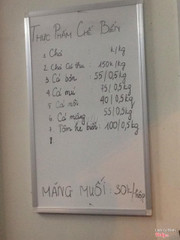 THỰC PHẨM CHẾ BIẾN
1. Chả k/kg
2. Chả Cá thu 150k/kg
3. Cá bớn 55/0,5kg
4. Cá mú 75/0,5kg
5. Cá nhồi 40/0,5kg
6. Cá măng 55/0,5kg
7. Tôm hẹ biển: 100/0,5kg
MĂNG MUỐI: 30K/hộp